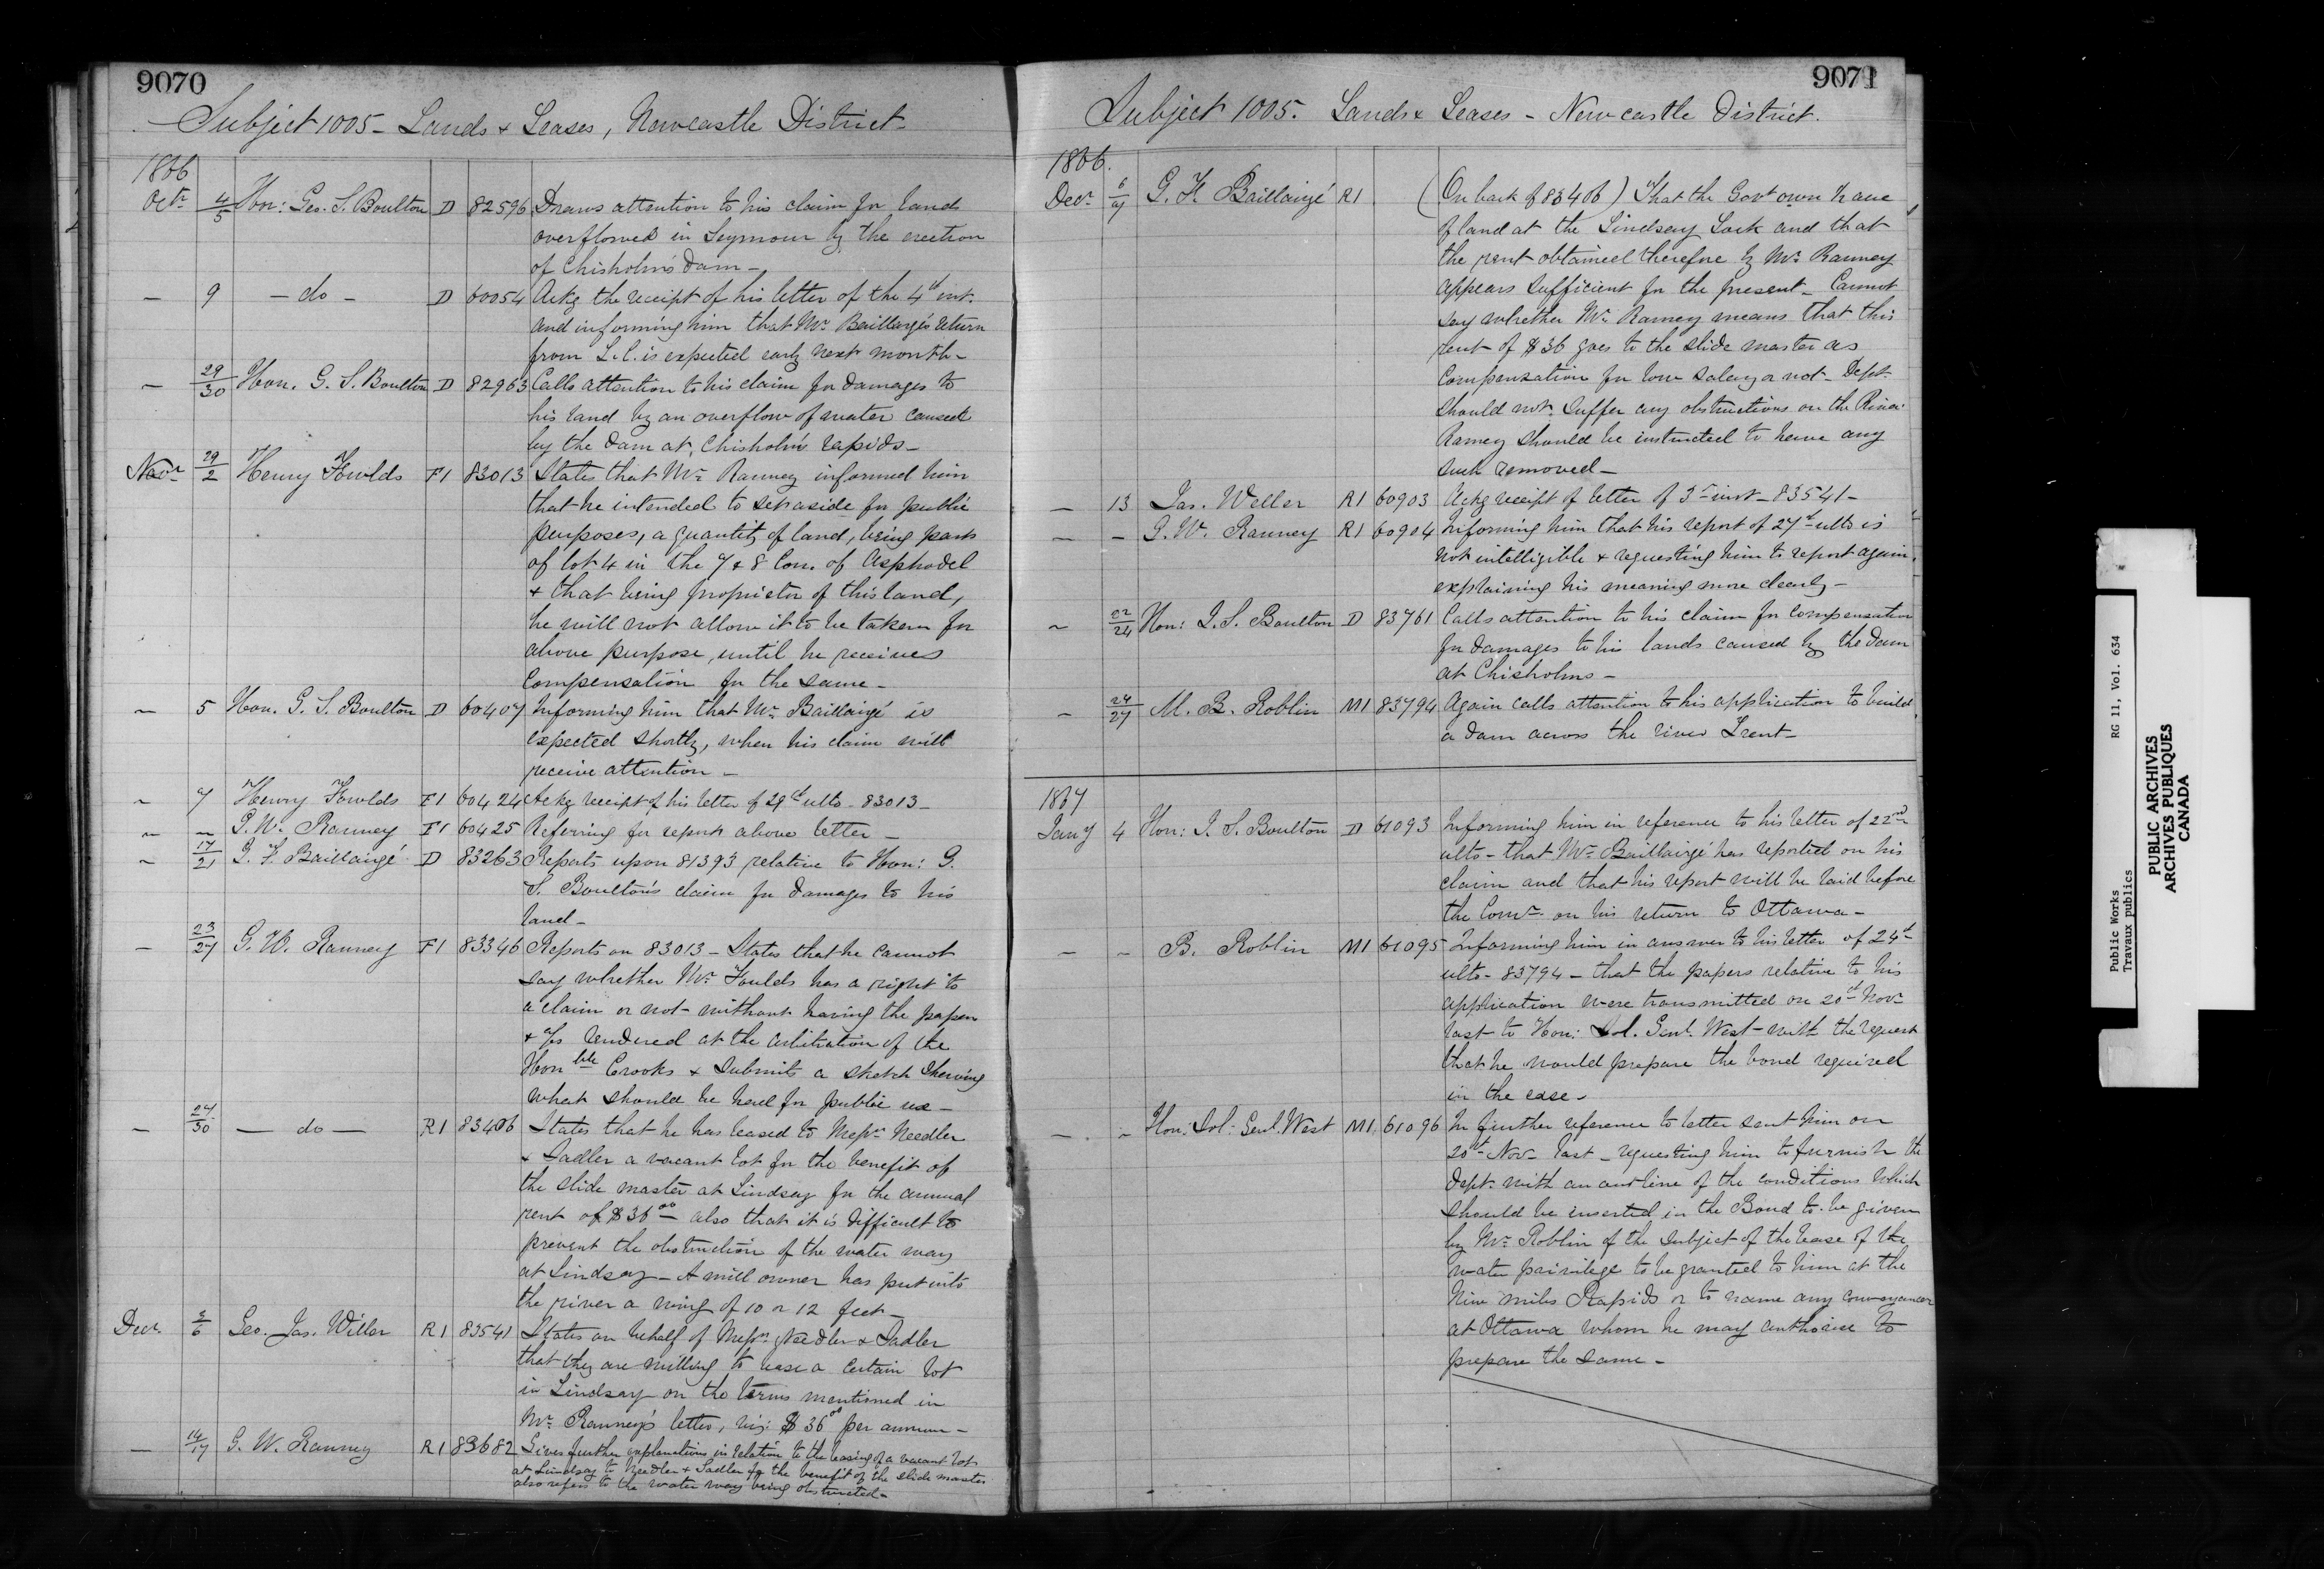 9070
Subject 1005 - Lands & Leases, Newcastle District.
1866
Octr 4/5 Hon: Geo. S. Boulton D 82596 Draws attention to his claim for land
overflowed in Seymour by the erection
of Chisholm's Dam -
- 9 - do - D 60054 Ackg the receipt of his letter of the 4th inst.
and informing him that Mr Baillargé's return
from L.C. is expected early next month -
- 29/30 Hon. G. S. Boulton D 82963 Calls attention to his claim for damages to
his land by an overflow of water caused
by the Dam at Chisholm's rapids -
Novr 29/2 Henry Fowlds F1 83013 States that Mr Ranney informed him
that he intended to set aside for public
purposes, a quantity of land, being part
of lot 4 in the 7 & 8 Con. of Asphodel
& that being proprietor of this land,
he will not allow it to be taken for
above purpose, until he receives
Compensation for the same -
- 5 Hon. G. S. Boulton D 60407 Informing him that Mr Baillairgé is
expected shortly, when his claim will
receive attention -
- 7 Henry Fowlds F1 60424 Ackg receipt of his letter of 29th ulto - 83013 -
- - G. W. Ranney F1 60425 Referring for report above letter -
- 17/21 G. F. Baillairgé D 83263 Reports upon 81393 relative to Hon: G.
S. Boulton's claim for damages to his
land -
- 23/27 G. W. Ranney F1 83346 Reports on 83013 - States that he cannot
say whether Mr Foulds has a right to
a claim or not - without having the papers
& a/cs rendered at the arbitration of the
Honble Crooks & Submits a sketch shewing
what should be had for public use -
- 27/30 - do - R1 83406 States that he has leased to Messrs Needler
& Sadler a vacant lot for the benefit of
the slide master at Lindsay for the annual
rent of $36.00 - also that it is difficult to
prevent the obstruction of the water way
at Lindsay - A mill owner has put into
the river a wing of 10 or 12 feet -
Decr 3/6 Geo. Jas. Willer R1 83541 States on behalf of Messrs Needler & Sadler
that they are willing to lease a certain lot
in Lindsay on the terms mentioned in
Mr Ranney's letter, viz: $36.00 per annum -
- 14/17 G. W. Ranney R1 83682 Gives further explanations in relation to the leasing of a vacant lot
at Lindsay to Needler & Sadler for the benefit of the slide master
also refers to the water way being obstructed -
9071
Subject 1005. Lands & Leases - Newcastle District.
1866.
Decr 6/7 G. F. Baillairgé R1 (On back of 83406) That the Govt own
of land at the Lindsay Lock and that
the rent obtained therefore by Mr Ranney
appears sufficient for the present - Cannot
say whether Mr Ranney means that this
rent of $36 goes to the slide master as
Compensation for low salary or not - Dept
should not suffer any obstructions on the River.
Ranney should be instructed to have any
such removed -
- 13 Jas. Weller R1 60903 Ackg receipt of letter of 3rd inst - 83541 -
- - G. W. Ranney R1 60904 Informing him that his report of 27th ulto is
not intelligible & requesting him to report again,
explaining his meaning more clearly -
- 22/24 Hon: G. S. Boulton D 83761 Calls attention to his claim for Compensation
for damages to his lands caused by the Dam
at Chisholms -
- 24/27 M. B. Roblin M1 83794 Again calls attention to his application to build
a dam across the river Trent -
1867
Jany 4 Hon: G. S. Boulton D 61093 Informing him in reference to his letter of 22nd
ulto - that Mr Baillairgé has reported on his
claim and that his report will be laid before
the Comr on his return to Ottawa -
- - B. Roblin M1 61095 Informing him in answer to his letter of 24th
ulto - 83794 - that the papers relative to his
application were transmitted on 20th Novr
last to Hon: Sol. Genl. West - with the request
that he would prepare the bond required
in the case -
- - Hon: Sol: Genl. West M1 61096 In further reference to letter sent him on
20th Nov. last - requesting him to furnish the
Dept. with an outline of the conditions which
should be inserted in the Bond to be given
by Mr Roblin of the subject of the lease of the
water privilege to be granted to him at the
Nine miles Rapids or to name any conveyancer
at Ottawa whom he may authorise to
prepare the same -
Public Works RG 11, Vol. 634
Travaux publics
PUBLIC ARCHIVES
ARCHIVES PUBLIQUES
CANADA